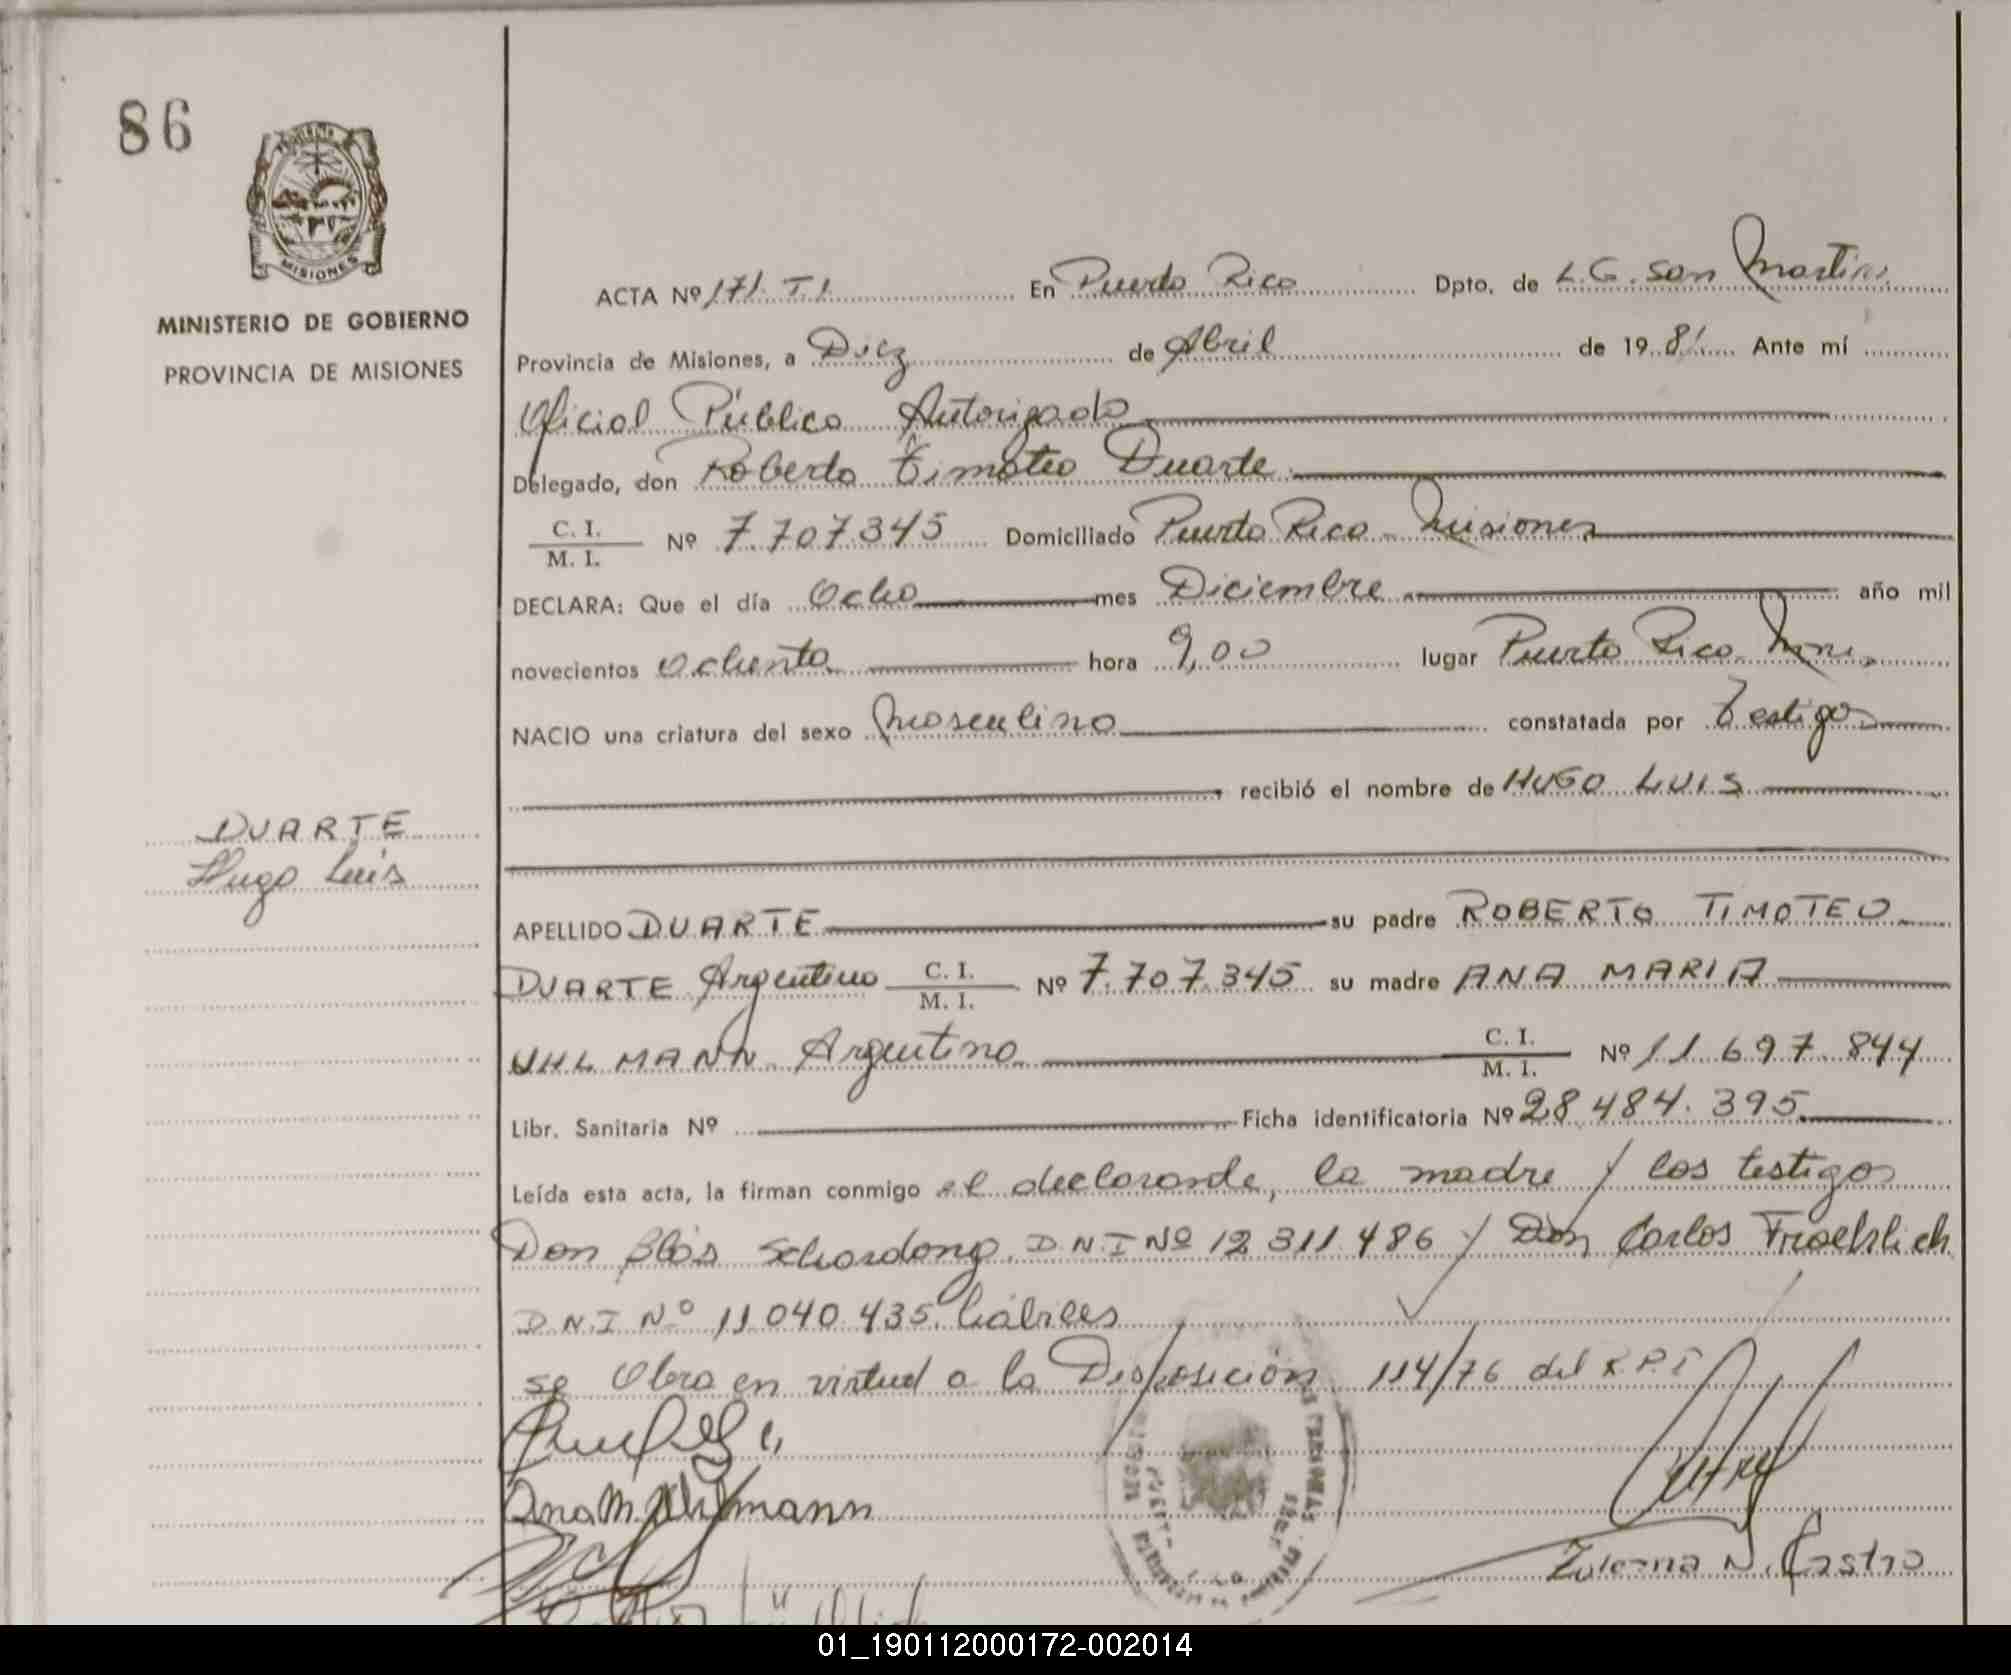 86
MISIONES
MINISTERIO DE GOBIERNO
PROVINCIA DE MISIONES
DUARTE
Hugo Luis
ACTA Nº 171. T I. En Puerto Rico Dpto. de L.G. San Martin
Provincia de Misiones, a Diez de Abril de 1981 Ante mí
Oficial Público Autorizado
Delegado, don Roberto Timoteo Duarte
C. I.
M. I. Nº 7.707.345 Domiciliado Puerto Rico - Misiones
DECLARA: Que el día Ocho mes Diciembre año mil
novecientos Ochenta hora 9,00 lugar Puerto Rico Mnes.
NACIO una criatura del sexo Masculino constatada por Testigos
recibió el nombre de HUGO LUIS
APELLIDO DUARTE su padre ROBERTO TIMOTEO
DUARTE Argentino C. I.
M. I. Nº 7.707.345 su madre ANA MARIA
UHLMANN Argentino C. I.
M. I. Nº 11.697.844
Libr. Sanitaria Nº Ficha identificatoria Nº 28.484.395
Leída esta acta, la firman conmigo el declarante, la madre y los testigos
Don Blás Schardong D.N.I Nº 12.311.486 y Don Carlos Froehlich
D.N.I Nº 11.040.435. hábiles
se Obra en virtud a la Disposición 114/76 del R.P.
Ana M. Uhlmann
Zulema N. Castro
01_190112000172-002014